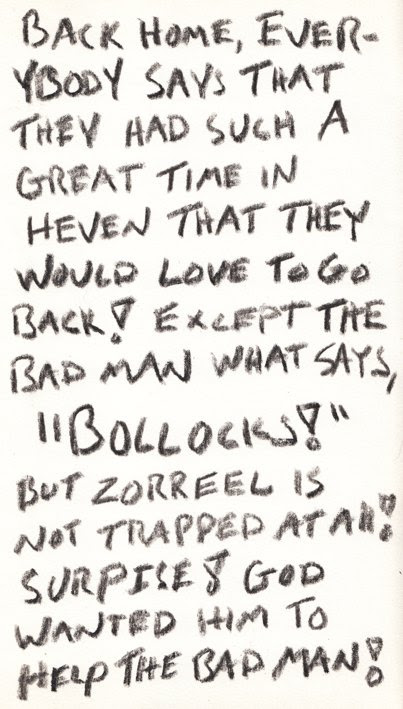 BACK HOME, EVER-
YBODY SAYS THAT
THEY HAD SUCH A
GREAT TIME IN
HEVEN THAT THEY
WOULD LOVE TO GO
BACK! EXCEPT THE
BAD MAN WHAT SAYS,
"BOLLOCKS!"
BUT ZORREEL IS
NOT TRAPPED AT All!
SURPISE! GOD
WANTED HIM TO
HELP THE BAD MAN!